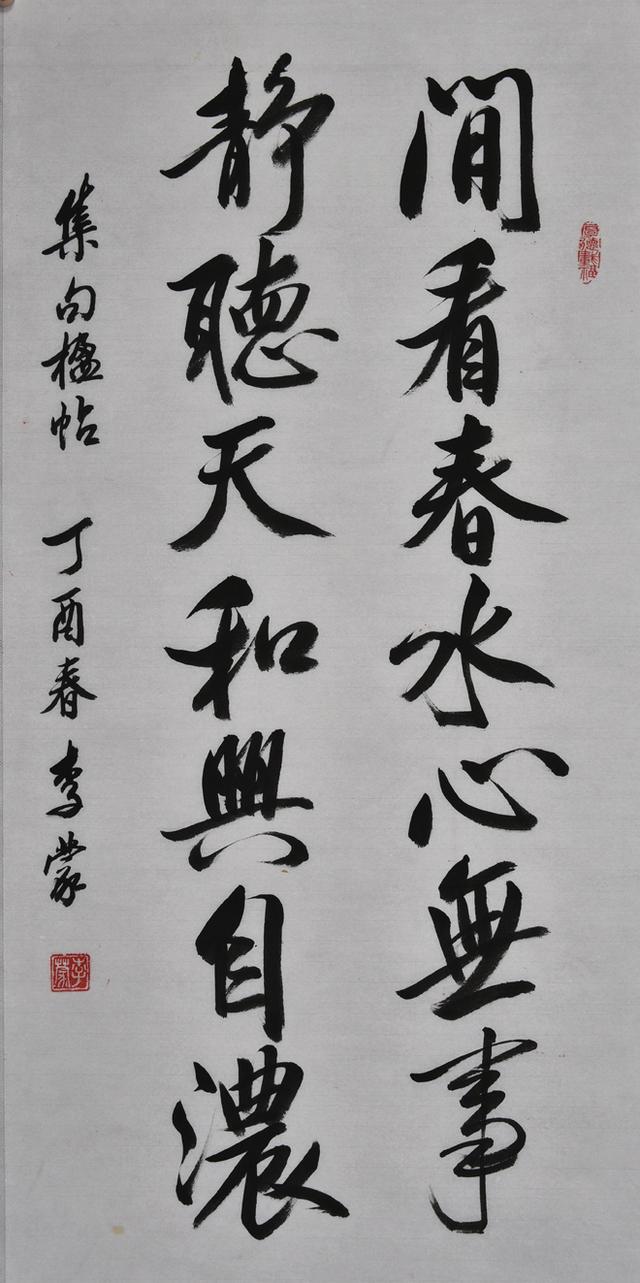 閒看春水心無事
静聽天和興自濃
集句楹帖 丁酉春 李蒙
李蒙